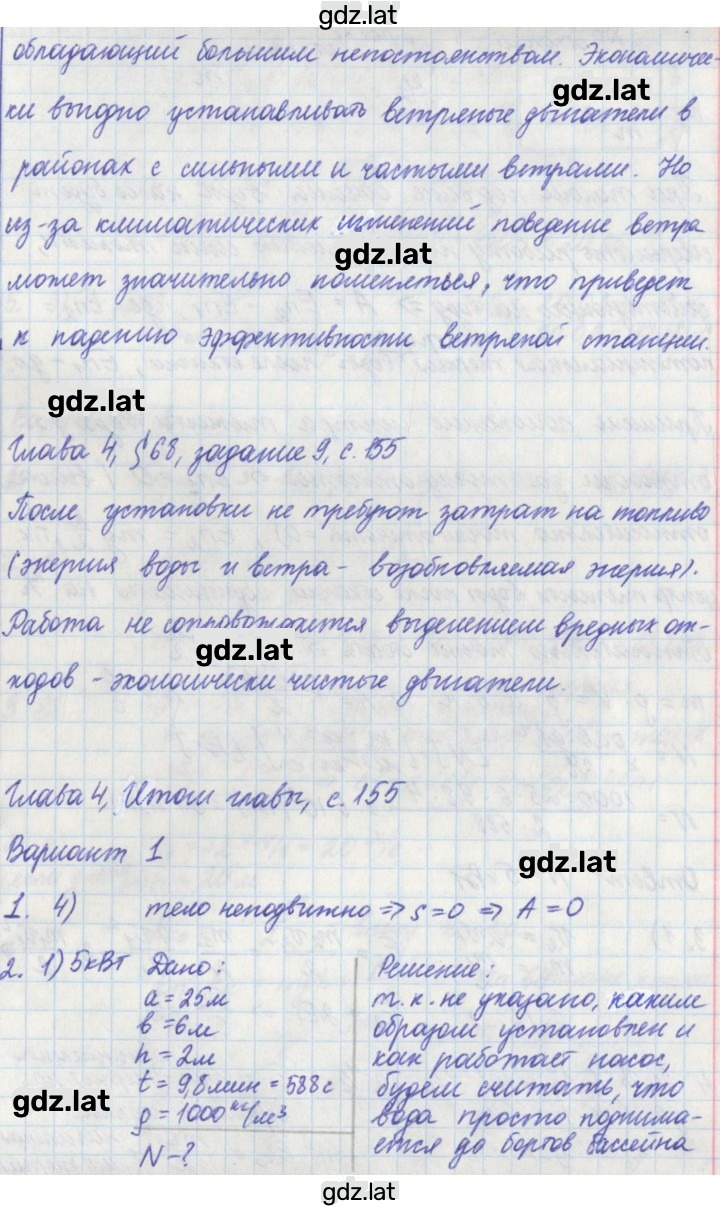 gdz.lat
обладающий большим непостоянством. Экономичес-
gdz.lat
ки выгодно устанавливать ветряные двигатели в
районах с сильными и частыми ветрами. Но
из-за климатических изменений поведение ветра
gdz.lat
может значительно поменяться, что приведет
к падению эффективности ветряной станции.
gdz.lat
Глава 4, §68, задание 9, с. 155
После установки не требуют затрат на топливо
(энергия воды и ветра - возобновляемая энергия).
Работа не сопровождается выделением вредных от-
gdz.lat
ходов - экологически чистые двигатели.
Глава 4, Итоги главы, с. 155
Вариант 1
gdz.lat
1. 4) тело неподвижно => s = 0 => A = 0
2. 1) 5кВт Дано: Решение:
a = 25м т. к. не указано, каким
в = 6м образом установлен и
h = 2м как работает насос,
t = 9,8мин = 588с будем считать, что
gdz.lat
ρ = 1000 кг/м³ вода просто поднима-
N - ? ется до бортов бассейна
gdz.lat